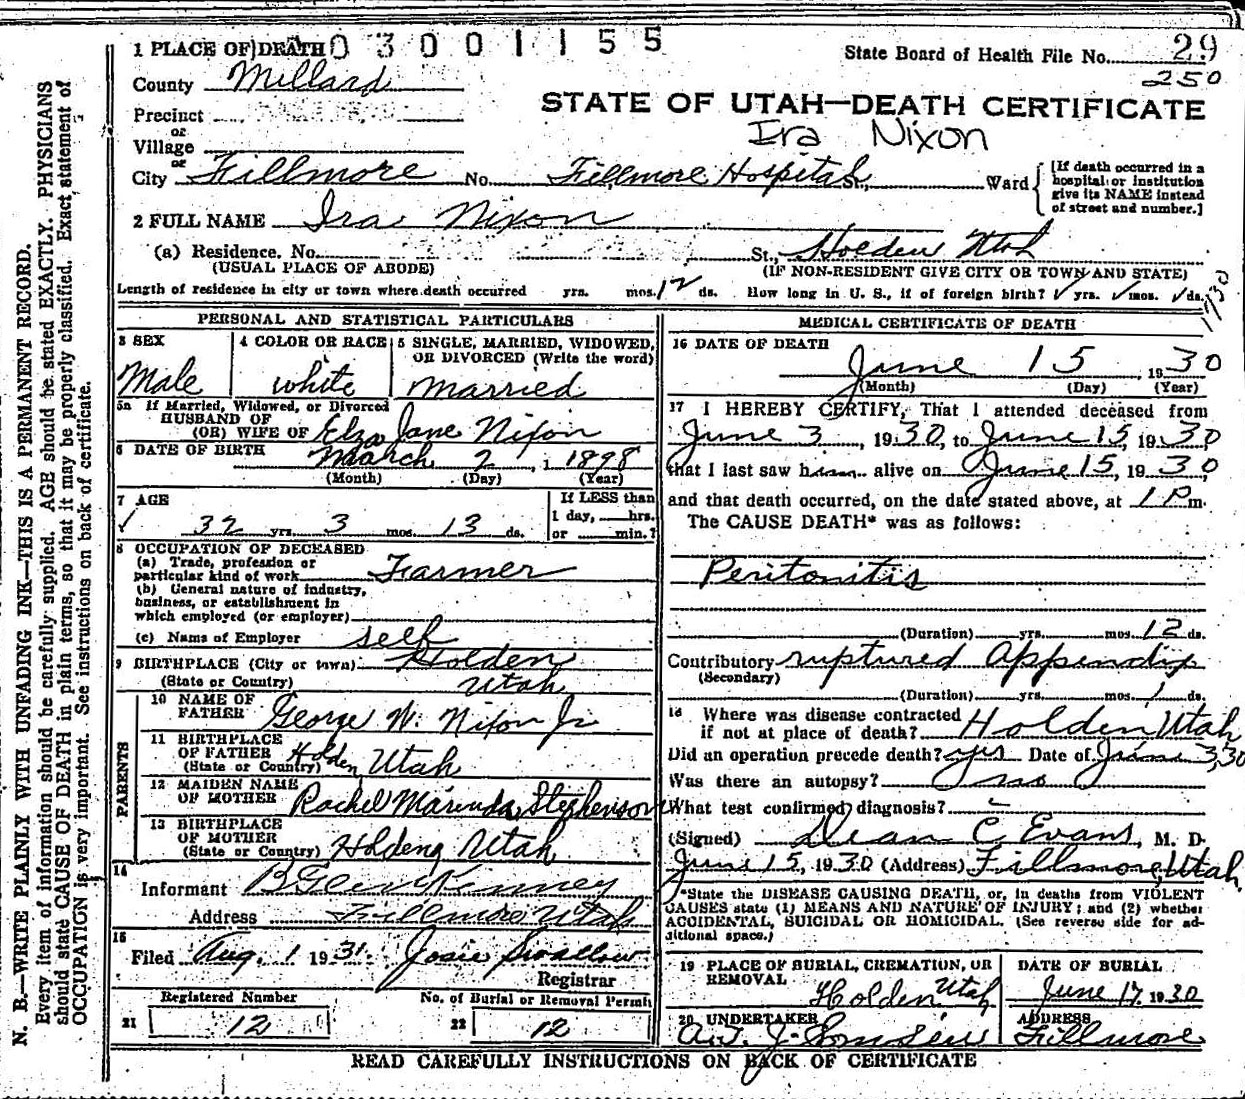 1 PLACE OF DEATH 0 3 0 0 1 1 5 5
State Board of Health File No. 29
250
County Millard
STATE OF UTAH—DEATH CERTIFICATE
Precinct
or
Village
Ira Nixon
or
City Fillmore No. Fillmore Hospital St., Ward
[If death occurred in a hospital or institution give its NAME instead of street and number.]
2 FULL NAME Ira Nixon
(a) Residence. No. St., Holden Utah
(USUAL PLACE OF ABODE) (IF NON-RESIDENT GIVE CITY OR TOWN AND STATE)
Length of residence in city or town where death occurred yrs. mos. 12 ds. How long in U. S., if of foreign birth? yrs. mos. ds.
PERSONAL AND STATISTICAL PARTICULARS
3 SEX 4 COLOR OR RACE 5 SINGLE, MARRIED, WIDOWED,
OR DIVORCED (Write the word)
Male white Married
5a If Married, Widowed, or Divorced
HUSBAND OF
(OR) WIFE OF Elza Jane Nixon
6 DATE OF BIRTH March 2, 1898
(Month) (Day) (Year)
7 AGE
32 yrs. 3 mos. 13 ds.
If LESS than
1 day, hrs.
or min.?
8 OCCUPATION OF DECEASED
(a) Trade, profession or
particular kind of work Farmer
(b) General nature of industry,
business, or establishment in
which employed (or employer)
(c) Name of Employer self
9 BIRTHPLACE (City or town) Holden
(State or Country) Utah
PARENTS
10 NAME OF
FATHER George W. Nixon Jr
11 BIRTHPLACE
OF FATHER
(State or Country) Holden, Utah
12 MAIDEN NAME
OF MOTHER Rachel Marinda Stephenson
13 BIRTHPLACE
OF MOTHER
(State or Country) Holden, Utah
14
Informant Kenney
Address Fillmore Utah
15
Filed Aug. 1 1931. Josie Swallow
Registrar
Registered Number No. of Burial or Removal Permit
21 12 22 12
MEDICAL CERTIFICATE OF DEATH
16 DATE OF DEATH
June 15, 1930
(Month) (Day) (Year)
17 I HEREBY CERTIFY, That I attended deceased from
June 3, 1930, to June 15, 1930
that I last saw him alive on June 15, 1930
and that death occurred, on the date stated above, at 1 Pm.
The CAUSE DEATH* was as follows:
Peritonitis
(Duration) yrs. mos. 12 ds.
Contributory ruptured Appendix
(Secondary)
(Duration) yrs. mos. 1 ds.
18 Where was disease contracted
if not at place of death? Holden, Utah
Did an operation precede death? yes Date of June 3, 30
Was there an autopsy? no
What test confirmed diagnosis?
(Signed) Dean C Evans, M. D.
June 15, 1930 (Address) Fillmore, Utah
*State the DISEASE CAUSING DEATH, or, in deaths from VIOLENT
CAUSES state (1) MEANS AND NATURE OF INJURY; and (2) whether
ACCIDENTAL, SUICIDAL OR HOMICIDAL. (See reverse side for ad-
ditional space.)
19 PLACE OF BURIAL, CREMATION, OR
REMOVAL
Holden Utah
DATE OF BURIAL
June 17, 1930
20 UNDERTAKER
ADDRESS
Fillmore
READ CAREFULLY INSTRUCTIONS ON BACK OF CERTIFICATE
N. B.—WRITE PLAINLY WITH UNFADING INK—THIS IS A PERMANENT RECORD.
Every item of information should be carefully supplied. AGE should be stated EXACTLY. PHYSICIANS
should state CAUSE OF DEATH in plain terms, so that it may be properly classified. Exact statement of
OCCUPATION is very important. See instructions on back of certificate.